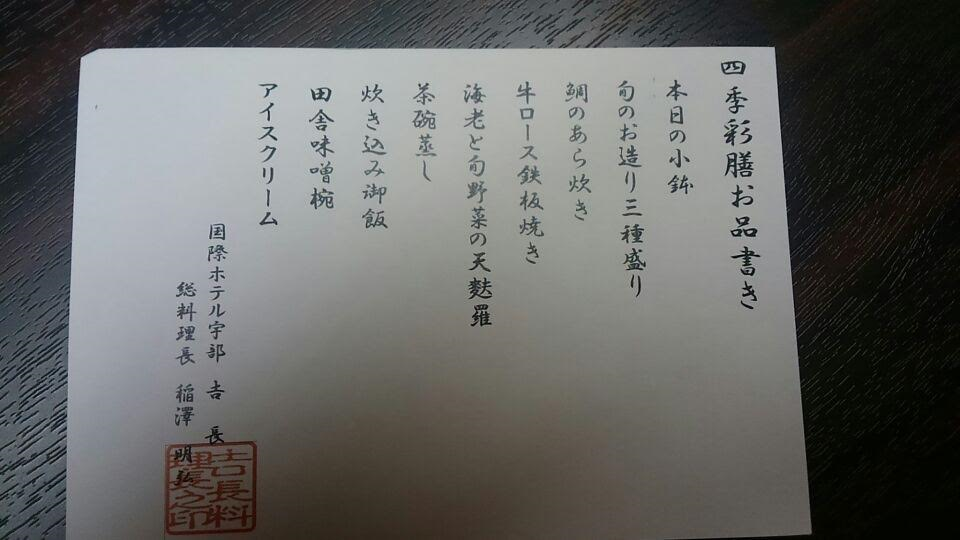 四季彩膳お品書き
本日の小鉢
旬のお造り三種盛り
鯛のあら炊き
牛ロース鉄板焼き
海老と旬野菜の天麩羅
茶碗蒸し
炊き込み御飯
田舎味噌椀
アイスクリーム
国際ホテル宇部 吉長
総料理長 稲澤 明弘
吉長料理長之印